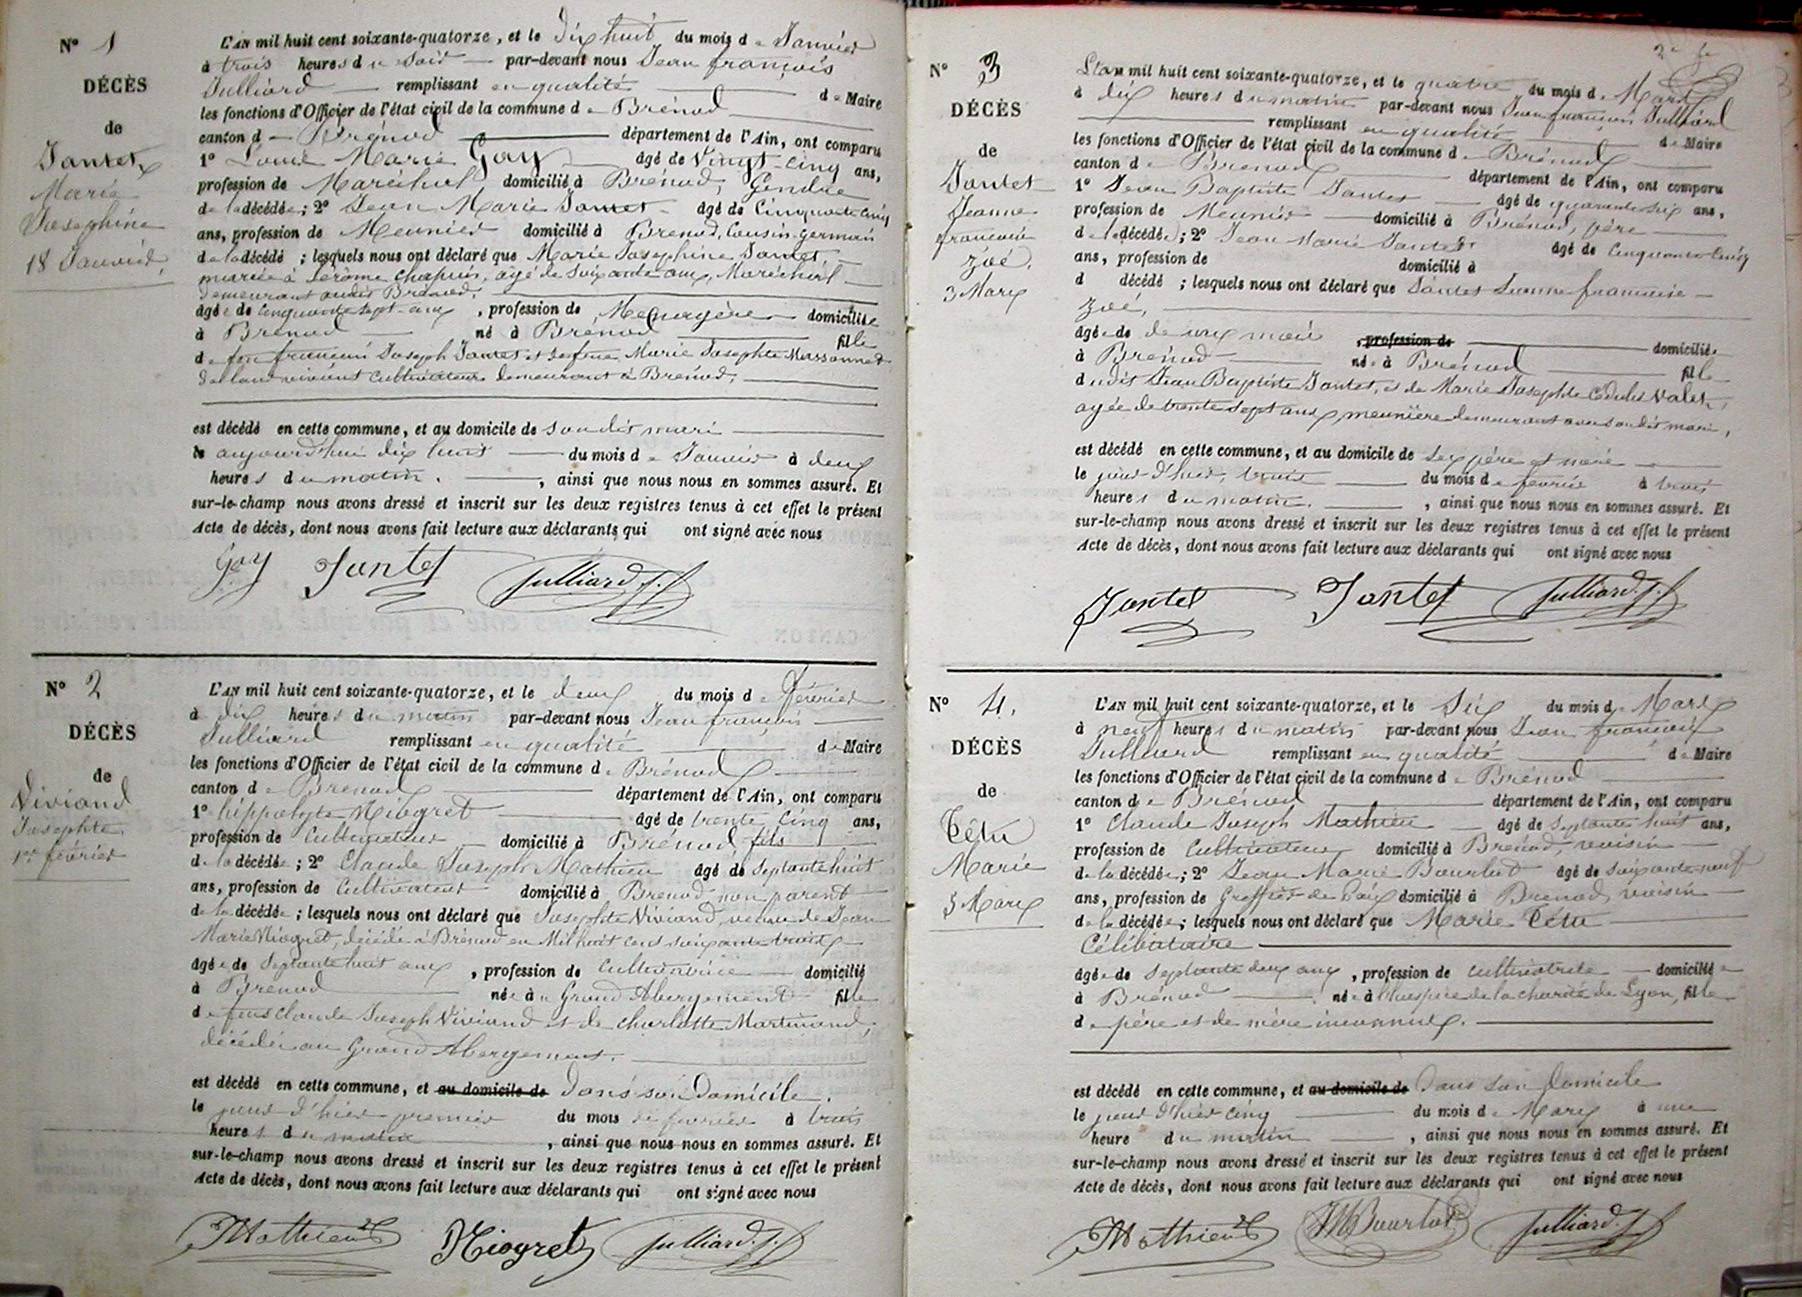 N° 1
DÉCÈS
de
Jantet
Marie
Josephine
18 Janvier
L'AN mil huit cent soixante-quatorze, et le dix huit du mois de Janvier
à trois heures du soir par-devant nous Jean françois
Julliard remplissant en qualité de Maire
les fonctions d'Officier de l'état civil de la commune de Brénod
canton de Brénod département de l'Ain, ont comparu
1° Louis Marie Gay âgé de Vingt cinq ans,
profession de Maréchal domicilié à Brénod, Gendre
de la décédée; 2° Jean Marie Jantet âgé de Cinquante cinq
ans, profession de Meunier domicilié à Brenod, Cousin germain
de la décédé ; lesquels nous ont déclaré que Marie Josephine Jantet,
mariée à Jérôme Chapuis, agé de Soixante ans, Maréchal
demeurant audit Brénod,
âgée de cinquante sept ans, profession de Menagère domicilié
à Brenod né à Brenod fille
de feu françois Joseph Jantet et de feue Marie Josephte Massonnet
de leur vivant cultivateurs demeurant à Brénod,
est décédé en cette commune, et au domicile de son dit mari
le aujourd'hui dix huit du mois de Janvier à deux
heures du matin. , ainsi que nous nous en sommes assuré. Et
sur-le-champ nous avons dressé et inscrit sur les deux registres tenus à cet effet le présent
Acte de décès, dont nous avons fait lecture aux déclarants qui ont signé avec nous
Gay Jantet Julliard J. f.
N° 2
DÉCÈS
de
Viviand
Josephte
1er février
L'AN mil huit cent soixante-quatorze, et le deux du mois de février
à dix heures du matin par-devant nous Jean françois
Julliard remplissant en qualité de Maire
les fonctions d'Officier de l'état civil de la commune de Brénod
canton de Brenod département de l'Ain, ont comparu
1° hippolyte Niogret âgé de trente cinq ans,
profession de Cultivateur domicilié à Brénod, fils
de la décédée; 2° Claude Joseph Mathieu âgé de Septante huit
ans, profession de Cultivateur domicilié à Brenod non parent
de la décédée ; lesquels nous ont déclaré que Josephte Viviand, veuve de Jean
Marie Niogret, décédé à Brénod en Mil huit cent soixante
âgée de Septante huit ans, profession de Cultivatrice domicilié
à Brenod née à u Grand Abergement fille
de feus Claude Joseph Viviand et de Charlotte Martinand,
décédés au Grand Abergement.
est décédé en cette commune, et au domicile de dans son Domicile.
le jour d'hier premier du mois de février à trois
heures du matin , ainsi que nous nous en sommes assuré. Et
sur-le-champ nous avons dressé et inscrit sur les deux registres tenus à cet effet le présent
Acte de décès, dont nous avons fait lecture aux déclarants qui ont signé avec nous
Mathieu Niogret Julliard J. f.
N° 3
DÉCÈS
de
Jantet
Jeanne
françoise
Zoé,
3 Mars
L'an mil huit cent soixante-quatorze, et le quatre du mois de Mars
à dix heures du matin par-devant nous Jean françois Julliard
remplissant en qualité de Maire
les fonctions d'Officier de l'état civil de la commune de Brénod
canton de Brenod département de l'Ain, ont comparu
1° Jean Baptiste Jantet âgé de quarante six ans,
profession de Meunier domicilié à Brénod, père
de la décédée; 2° Jean Marie Jantet âgé de Cinquante cinq
ans, profession de domicilié à
d décédé ; lesquels nous ont déclaré que Jantet Jeanne françoise
Zoé,
âgée de deux mois , profession de domicilié
à Brénod née à Brénod fille
dudit Jean Baptiste Jantet, et de Marie Josephte Valet,
agée de trente sept ans, meunière demeurant avec son dit mari,
est décédé en cette commune, et au domicile de ses père et mère
le jour d'hier, trois du mois de février à trois
heures du matin. , ainsi que nous nous en sommes assuré. Et
sur-le-champ nous avons dressé et inscrit sur les deux registres tenus à cet effet le présent
Acte de décès, dont nous avons fait lecture aux déclarants qui ont signé avec nous
Jantet Jantet Julliard J. f.
N° 4.
DÉCÈS
de
Têtu
Marie
5 Mars
L'AN mil huit cent soixante-quatorze, et le Six du mois de Mars
à neuf heures du matin par-devant nous Jean françois
Julliard remplissant en qualité de Maire
les fonctions d'Officier de l'état civil de la commune de Brénod
canton de Brénod département de l'Ain, ont comparu
1° Claude Joseph Mathieu âgé de Septante huit ans,
profession de Cultivateur domicilié à Brénod, voisin
de la décédée; 2° Jean Marie Bourbot âgé de soixante neuf
ans, profession de Greffier de Paix domicilié à Brenod, voisin
de la décédée; lesquels nous ont déclaré que Marie Têtu
Célibataire
âgée de Septante deux ans, profession de cultivatrice domiciliée
à Brénod née à l'hospice de la charité de Lyon, fille
de père et de mère inconnus.
est décédé en cette commune, et au domicile de Dans son Domicile
le jour d'hier cinq du mois de Mars à une
heure du matin , ainsi que nous nous en sommes assuré. Et
sur-le-champ nous avons dressé et inscrit sur les deux registres tenus à cet effet le présent
Acte de décès, dont nous avons fait lecture aux déclarants qui ont signé avec nous
Mathieu JMBourbot Julliard J. f.